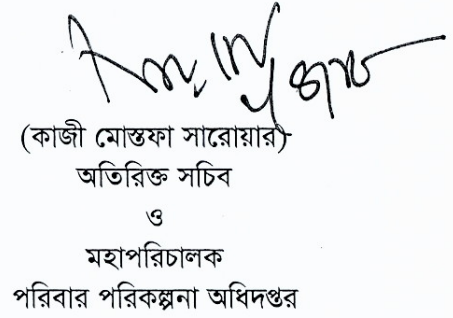 (কাজী মোস্তফা সারোয়ার)
অতিরিক্ত সচিব
ও
মহাপরিচালক
পরিবার পরিকল্পনা অধিদপ্তর